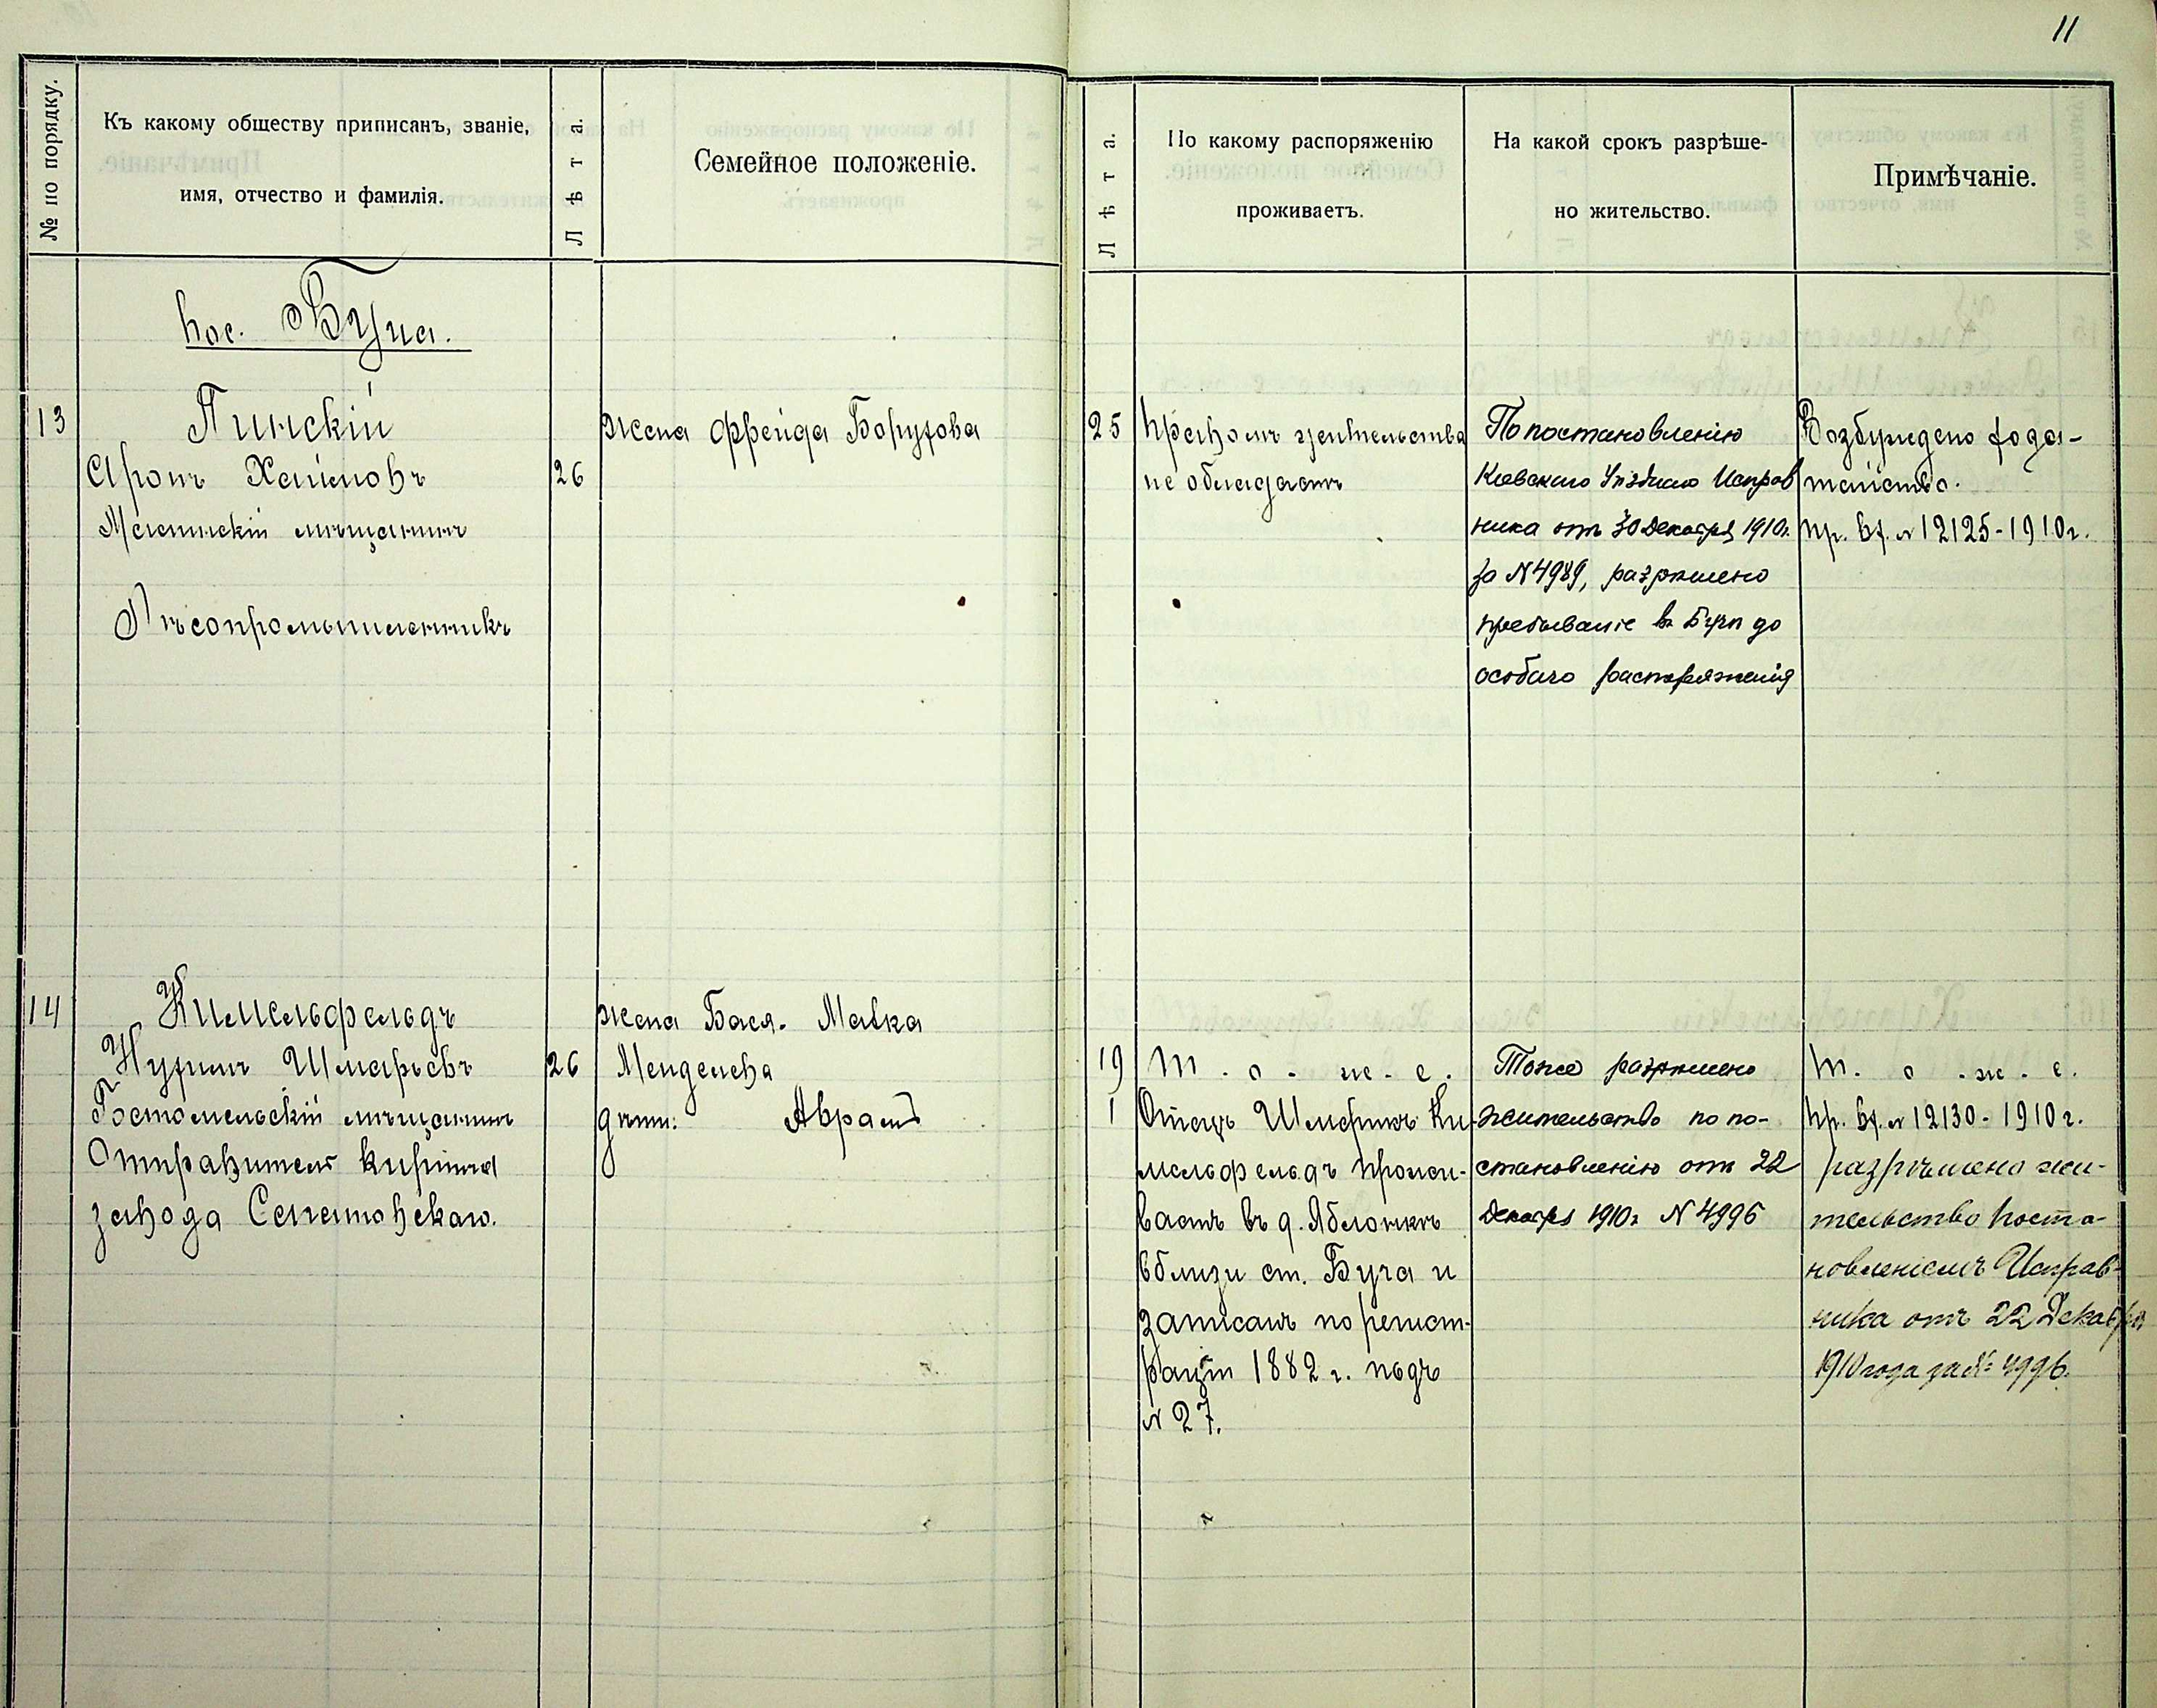 11
№ по порядку.
Къ какому обществу приписанъ, званіе,
имя, отчество и фамилія.
Лѣта.
Семейное положеніе.
Лѣта.
По какому распоряженію
проживаетъ.
На какой срокъ разрѣше-
но жительство.
Примѣчаніе.
пос. Буча.
13
Пинскій
Аронъ Хаимовъ
26
мѣщанинъ
Лѣсопромышленникъ
жена Фрейда Борухова
25
Правомъ жительства
не обладаетъ
По постановленію
Кіевскаго Уѣзднаго Исправ
ника отъ 30 Декабря 1910г.
за № 4989, разрѣшено
пребываніе въ Бучѣ до
особаго распоряженія
Возбуждено хода-
тайство.
пр. вх. № 12125-1910г.
14
Кимельфельдъ
Нухимъ Шмарьевъ
26
Гостомельскій мѣщанинъ
Отправитель кирпича
завода
жена Бася-Малка
Менделева
дѣти: Аврамъ
19
1
т.о.-же.
Отецъ Ки-
мельфельдъ прожи-
ваетъ въ д. Яблонкѣ
вблизи ст. Буча и
записанъ по регист-
раціи 1882 г. подъ
№ 27.
Тоже разрѣшено
жительство по по-
становленію отъ 22
Декабря 1910г № 4996
т.о.-же.
пр. вх. № 12130-1910г.
разрѣшено жи-
тельство поста-
новленіемъ Исправ-
ника отъ 22 Декабря
1910 года за № 4996.